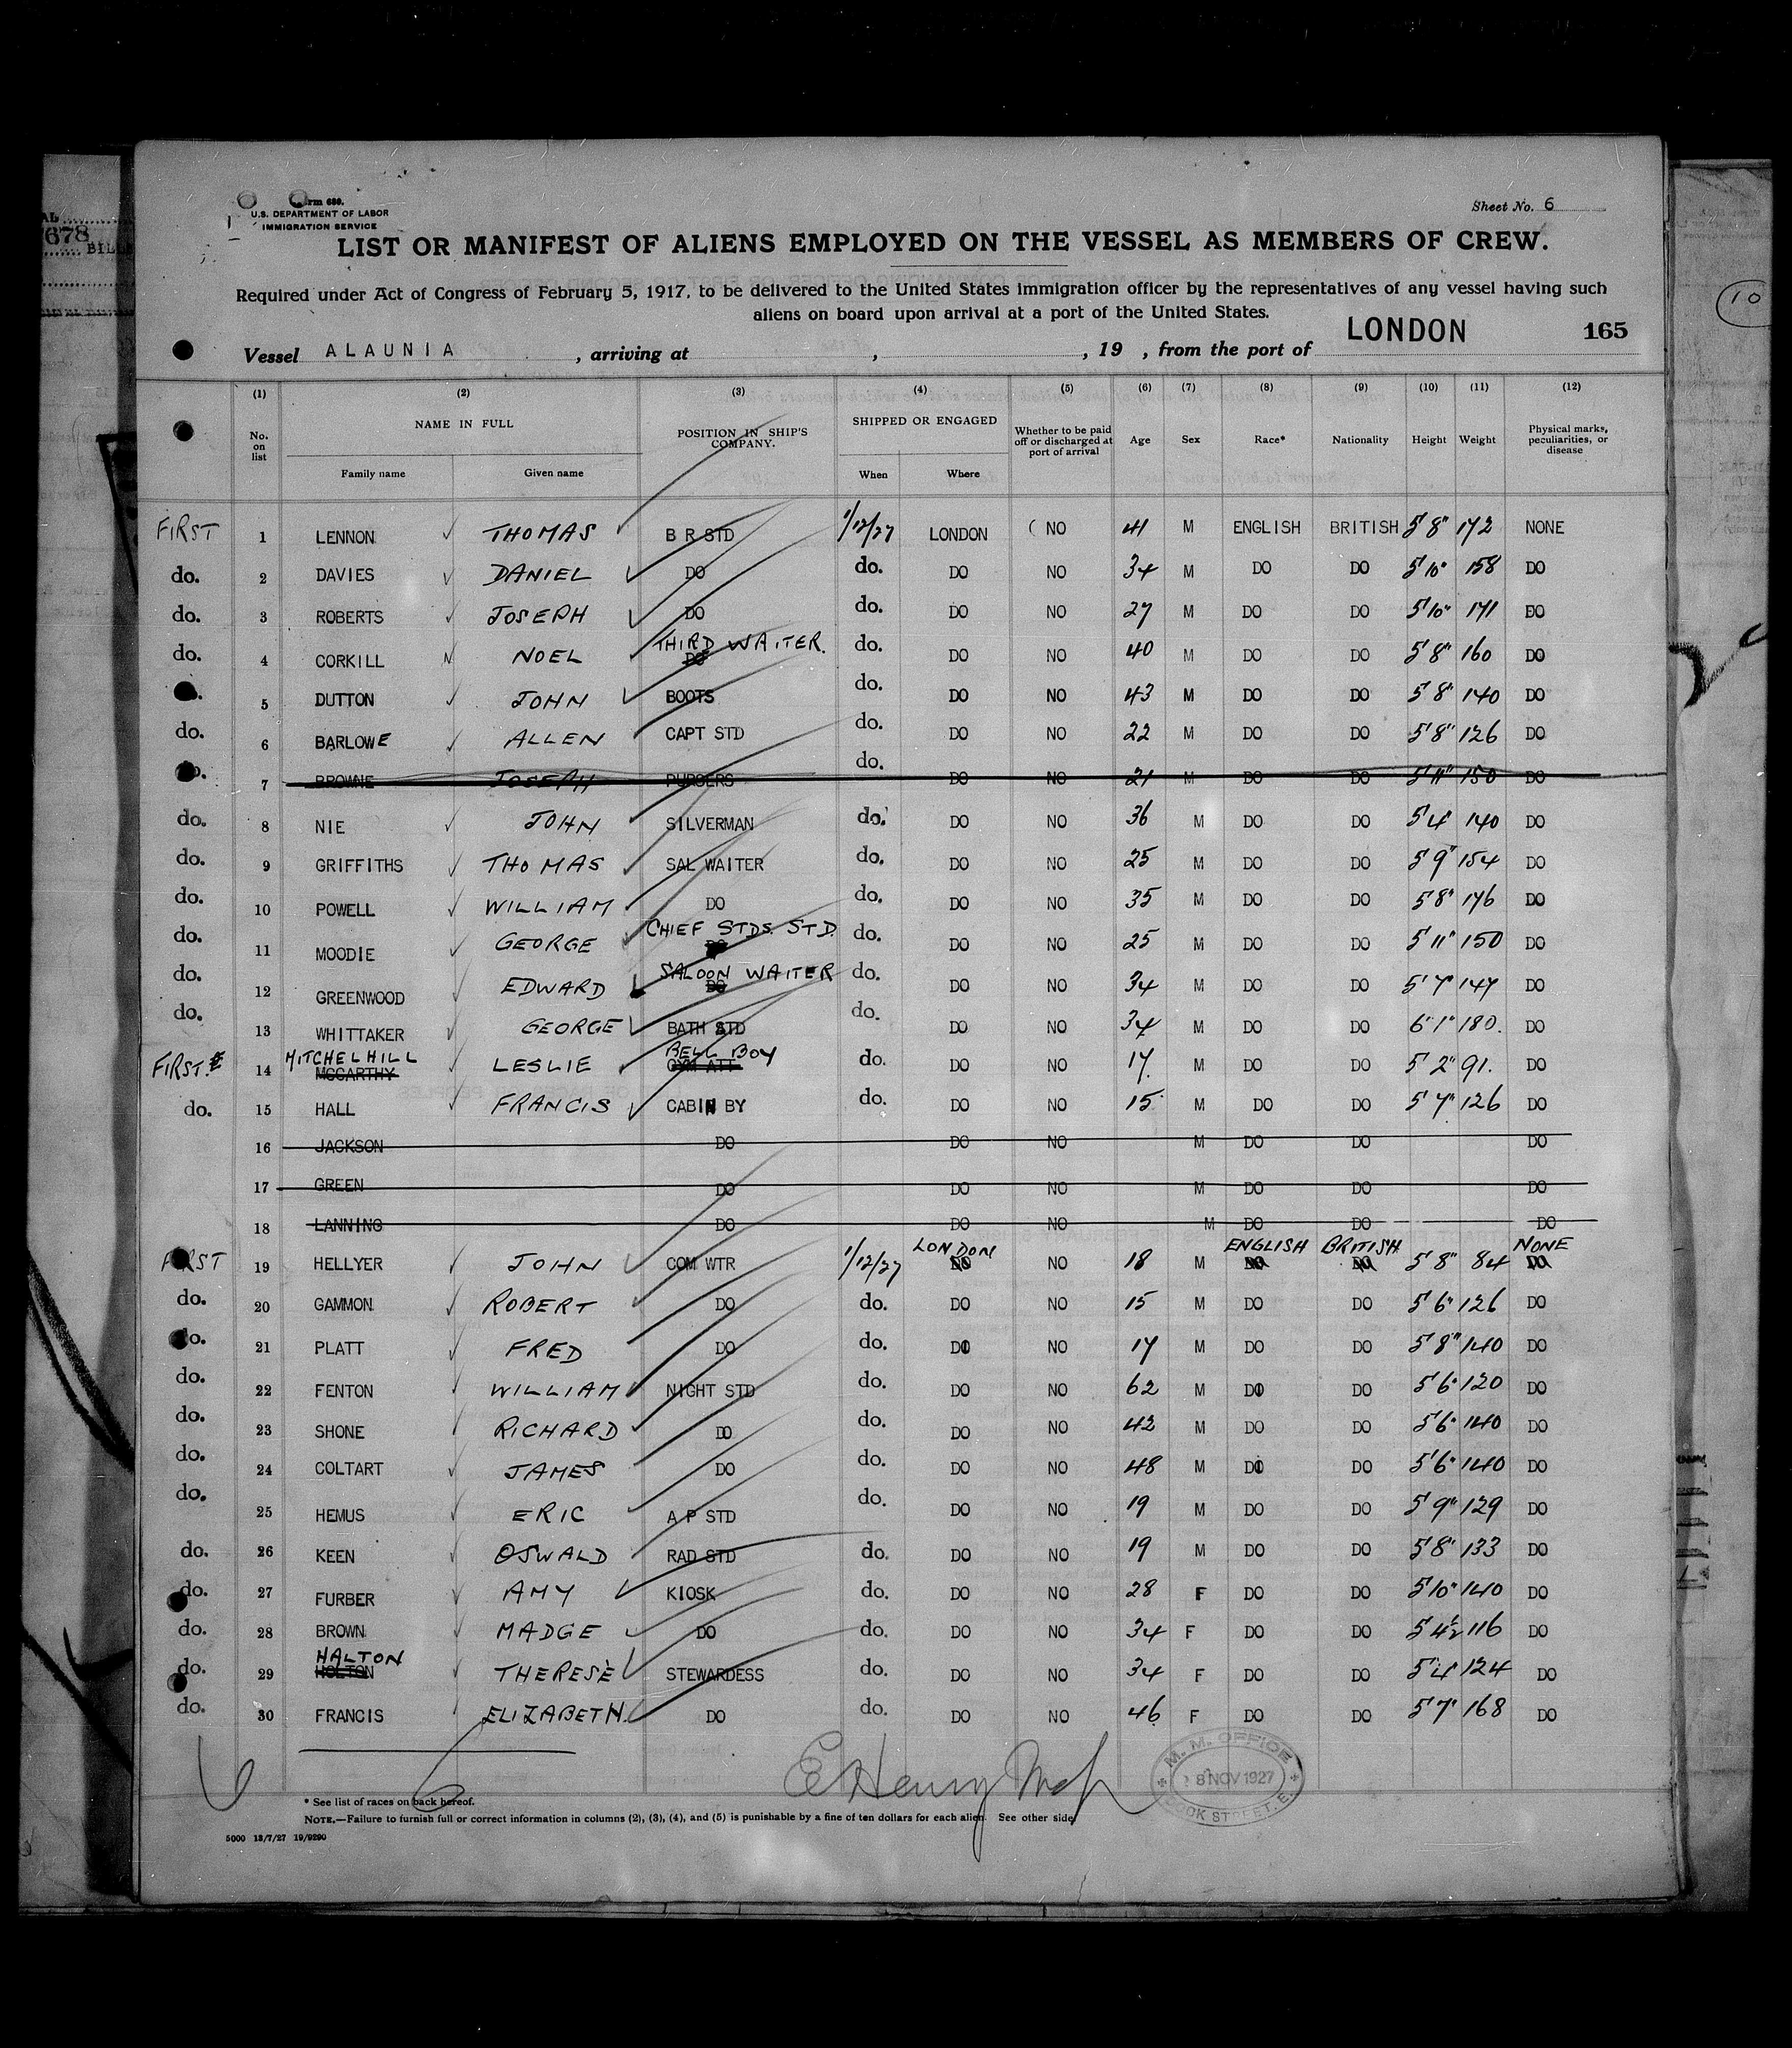 Form 689.
U.S. DEPARTMENT OF LABOR
IMMIGRATION SERVICE
Sheet No. 6
LIST OR MANIFEST OF ALIENS EMPLOYED ON THE VESSEL AS MEMBERS OF CREW.
Required under Act of Congress of February 5, 1917, to be delivered to the United States immigration officer by the representatives of any vessel having such
aliens on board upon arrival at a port of the United States.
Vessel ALAUNIA, arriving at , , 19 , from the port of LONDON 165
(1) (2) (3) (4) (5) (6) (7) (8) (9) (10) (11) (12)
No. on list NAME IN FULL Family name Given name POSITION IN SHIP'S COMPANY. SHIPPED OR ENGAGED When Where Whether to be paid off or discharged at port of arrival Age Sex Race* Nationality Height Weight Physical marks, peculiarities, or disease
FIRST 1 LENNON THOMAS B R STD 1/12/27 LONDON NO 41 M ENGLISH BRITISH 5'8" 172 NONE
do. 2 DAVIES DANIEL DO do. DO NO 34 M DO DO 5'10" 158 DO
do. 3 ROBERTS JOSEPH DO do. DO NO 27 M DO DO 5'10" 171 DO
do. 4 CORKILL NOEL THIRD WAITER. DO do. DO NO 40 M DO DO 5'8" 160 DO
do. 5 DUTTON JOHN BOOTS do. DO NO 43 M DO DO 5'8" 140 DO
do. 6 BARLOWE ALLEN CAPT STD do. DO NO 22 M DO DO 5'8" 126 DO
do. 7 BROWNE JOSEPH PURSERS do. DO NO 21 M DO DO 5'11" 150 DO
do. 8 NIE JOHN SILVERMAN do. DO NO 36 M DO DO 5'4" 140 DO
do. 9 GRIFFITHS THOMAS SAL WAITER do. DO NO 25 M DO DO 5'9" 154 DO
do. 10 POWELL WILLIAM DO do. DO NO 35 M DO DO 5'8" 176 DO
do. 11 MOODIE GEORGE CHIEF STDS. STD. do. DO NO 25 M DO DO 5'11" 150 DO
do. 12 GREENWOOD EDWARD SALOON WAITER DO do. DO NO 34 M DO DO 5'7" 147 DO
do. 13 WHITTAKER GEORGE BATH STD do. DO NO 34 M DO DO 6'1" 180. DO
FIRST. 14 MITCHELHILL MCCARTHY LESLIE BELL BOY GYM ATT do. DO NO 17. M DO DO 5'2" 91. DO
do. 15 HALL FRANCIS CABIN BY do. DO NO 15 M DO DO 5'7" 126 DO
16 JACKSON DO DO NO M DO DO DO
17 GREEN DO DO NO M DO DO DO
18 LANNING DO DO NO M DO DO DO
FIRST 19 HELLYER JOHN COM WTR 1/12/27 LONDON DO NO 18 M ENGLISH DO BRITISH DO 5'8" 84 NONE DO
do. 20 GAMMON ROBERT DO do. DO NO 15 M DO DO 5'6" 126 DO
do. 21 PLATT FRED DO do. DO NO 17 M DO DO 5'8" 140 DO
do. 22 FENTON WILLIAM NIGHT STD do. DO NO 62 M DO DO 5'6" 120 DO
do. 23 SHONE RICHARD DO do. DO NO 42 M DO DO 5'6" 140 DO
do. 24 COLTART JAMES DO do. DO NO 48 M DO DO 5'6" 140 DO
do. 25 HEMUS ERIC A P STD do. DO NO 19 M DO DO 5'9" 129 DO
do. 26 KEEN OSWALD RAD STD do. DO NO 19 M DO DO 5'8" 133 DO
do. 27 FURBER AMY KIOSK do. DO NO 28 F DO DO 5'10" 140 DO
do. 28 BROWN MADGE DO do. DO NO 34 F DO DO 5'4½ 116 DO
do. 29 HALTON HOLTON THERESE STEWARDESS do. DO NO 34 F DO DO 5'4" 124 DO
do. 30 FRANCIS ELIZABETH. DO do. DO NO 46 F DO DO 5'7" 168 DO
E Henry
M. M. OFFICE
28 NOV 1927
DOCK STREET. E.
* See list of races on back hereof.
NOTE.—Failure to furnish full or correct information in columns (2), (3), (4), and (5) is punishable by a fine of ten dollars for each alien. See other side.
5000 13/7/27 19/9290
678
BILL
10